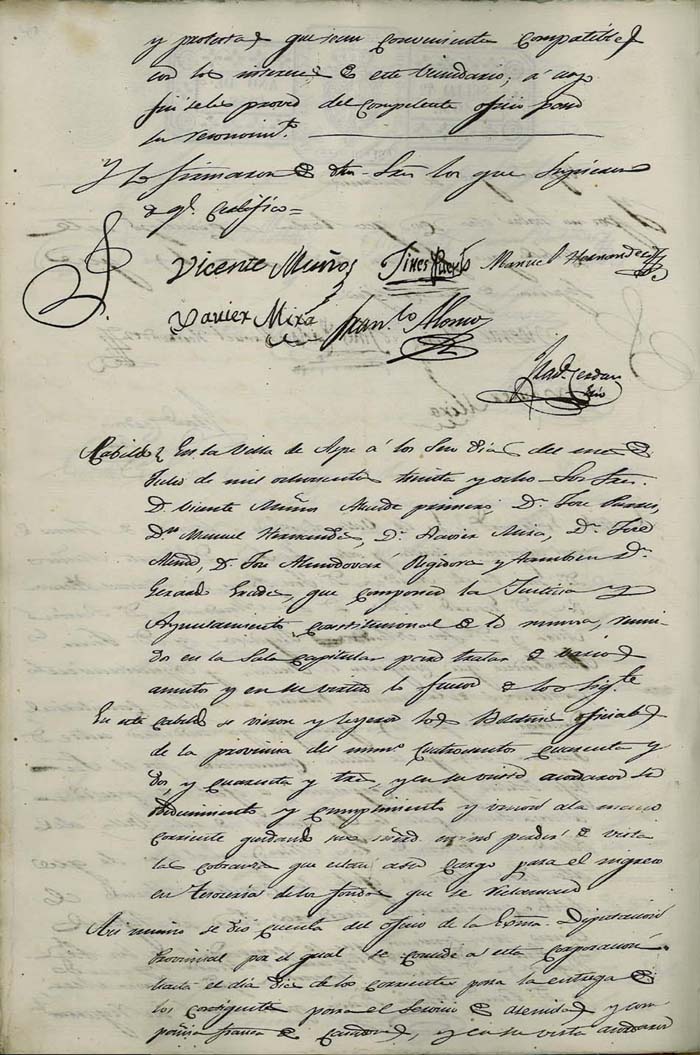 y protesta que sean conveniente compatible
con los interes de este vecindario; á cuyo
fin se les proveá del competente oficio para
su reconocimto.
Y lo firmaron de dhos Sres los que supieron
de qe. Certifico =
Vicente Muños Gines Manuel Hernandez
Xavier Mira Franco Alonso
Cerdan
Srio
Cabildo En la Villa de Aspe á los Seis dias del mes de
Julio de mil ochocientos treinta y ocho. Los Sres.
D. Vicente Muños Alcalde primero, Dn. Jose
Dn. Manuel Hernandez, D. Xavier Mira, Dn. José
D. José Almodovar Regidores y tambien Dn.
Gerardo que componen la Justicia y
Ayuntamiento Constitucional de la misma, reuni-
dos en la Sala Capitular para tratar de varios
asuntos y en su virtud lo fueron de los sigtes
En este Cabildo se vieron y leyeron los Boletines oficiales
de la provincia del numo. cuatrocientos cuarenta y
dos, y cuarenta y tres, y en su vista acordaron se
obedecimiento y cumplimiento y
corriente quedando de vista
las cobranzas que estan a su cargo para el ingreso
en tesoreria de los fondos que se reclaman
Asi mismo se dio cuenta del oficio de la Exma. Diputacion
Provincial por el qual se concede a esta Corporacion
hasta el dia diez de los corrientes para la entrega de
los contigentes para el Servicio de y com
pañia franca de y en su vista acordaron